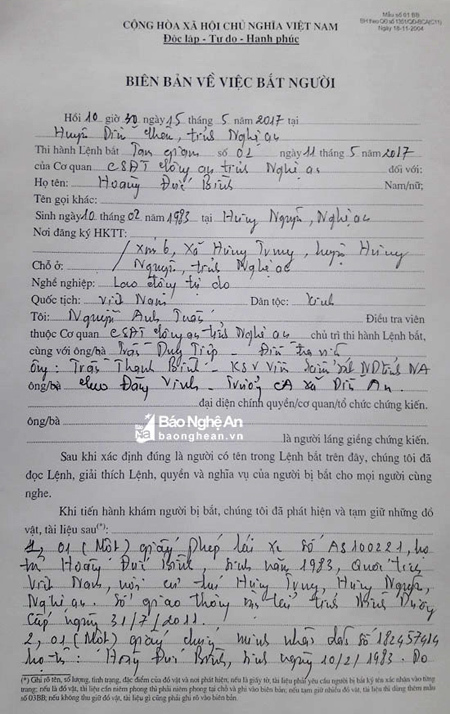 Mẫu số 81 BB
BH theo QĐ số 1351/QĐ-BCA(C11)
Ngày 18-11-2004
CỘNG HÒA XÃ HỘI CHỦ NGHĨA VIỆT NAM
Độc lập - Tự do - Hạnh phúc
BIÊN BẢN VỀ VIỆC BẮT NGƯỜI
Hồi 10 giờ 30 ngày 15 tháng 5 năm 2017 tại
Huyện Diễn Châu, tỉnh Nghệ An
Thi hành Lệnh bắt Tạm giam số 02 ngày 11 tháng 5 năm 2017
của Cơ quan CSĐT Công an tỉnh Nghệ An đối với:
Họ tên: Hoàng Đức Bình Nam/nữ;
Tên gọi khác:
Sinh ngày 10 tháng 02 năm 1983 tại Hưng Nguyên, Nghệ An
Nơi đăng ký HKTT:
xóm 6, xã Hưng Trung, huyện Hưng
Chỗ ở: Nguyên, tỉnh Nghệ An
Nghề nghiệp: Lao động tự do
Quốc tịch: Việt Nam Dân tộc: Kinh
Tôi: Nguyễn Anh Tuấn Điều tra viên
thuộc Cơ quan CSĐT Công an tỉnh Nghệ An chủ trì thi hành Lệnh bắt,
cùng với ông/bà Trần Duy Tiếp - Điều tra viên
Ông: Trần Thanh Bình - KSV Viện kiểm sát ND tỉnh NA
ông/bà Cao Đăng Vinh - Trưởng CA xã Diễn An
đại diện chính quyền/cơ quan/tổ chức chứng kiến.
Báo Nghệ An
baonghean.vn
ông/bà
là người láng giềng chứng kiến.
Sau khi xác định đúng là người có tên trong Lệnh bắt trên đây, chúng tôi đã
đọc Lệnh, giải thích Lệnh, quyền và nghĩa vụ của người bị bắt cho mọi người cùng
nghe.
Khi tiến hành khám người bị bắt, chúng tôi đã phát hiện và tạm giữ những đồ
vật, tài liệu sau(*):
1, 01 (Một) giấy phép lái xe số AS100221, họ
tên Hoàng Đức Bình, sinh năm 1983, Quốc tịch
Việt Nam, nơi cư trú Hưng Trung, Hưng Nguyên,
Nghệ An. Sở giao thông vận tải tỉnh Bình Dương
cấp ngày 31/7/2011.
2, 01 (Một) giấy chứng minh nhân dân số 182457414
họ tên: Hoàng Đức Bình, sinh ngày 10/2/1983. Do
(*) Ghi rõ tên, số lượng, tình trạng, đặc điểm của đồ vật và nơi phát hiện, nếu là giấy tờ, tài liệu phải yêu cầu người bị bắt ký tên xác nhận vào từng
trang; nếu là đồ vật, tài liệu cần niêm phong thì phải niêm phong tại chỗ và ghi vào biên bản; nếu tạm giữ nhiều đồ vật, tài liệu thì dùng thêm mẫu
số 03BB; nếu không thu giữ đồ vật, tài liệu gì cũng phải ghi rõ vào biên bản.